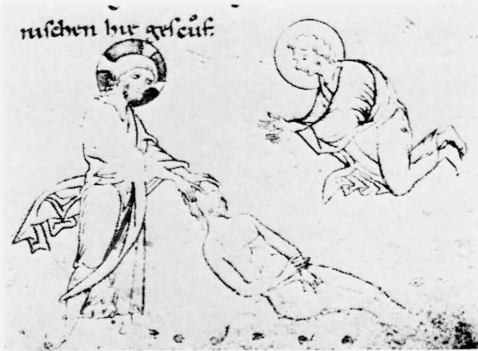 nischen hie gescůf.